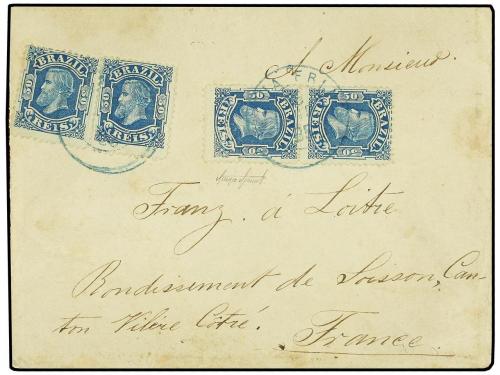 BRAZIL 50 50 REIS
BRAZIL 50 50 REIS
BRAZIL 50 50 REIS
BRAZIL 50 50 REIS
A Monsieur
Franz. à Loitre
Rondissement de Soisson, Can-
ton Vilère Cotré.
France.